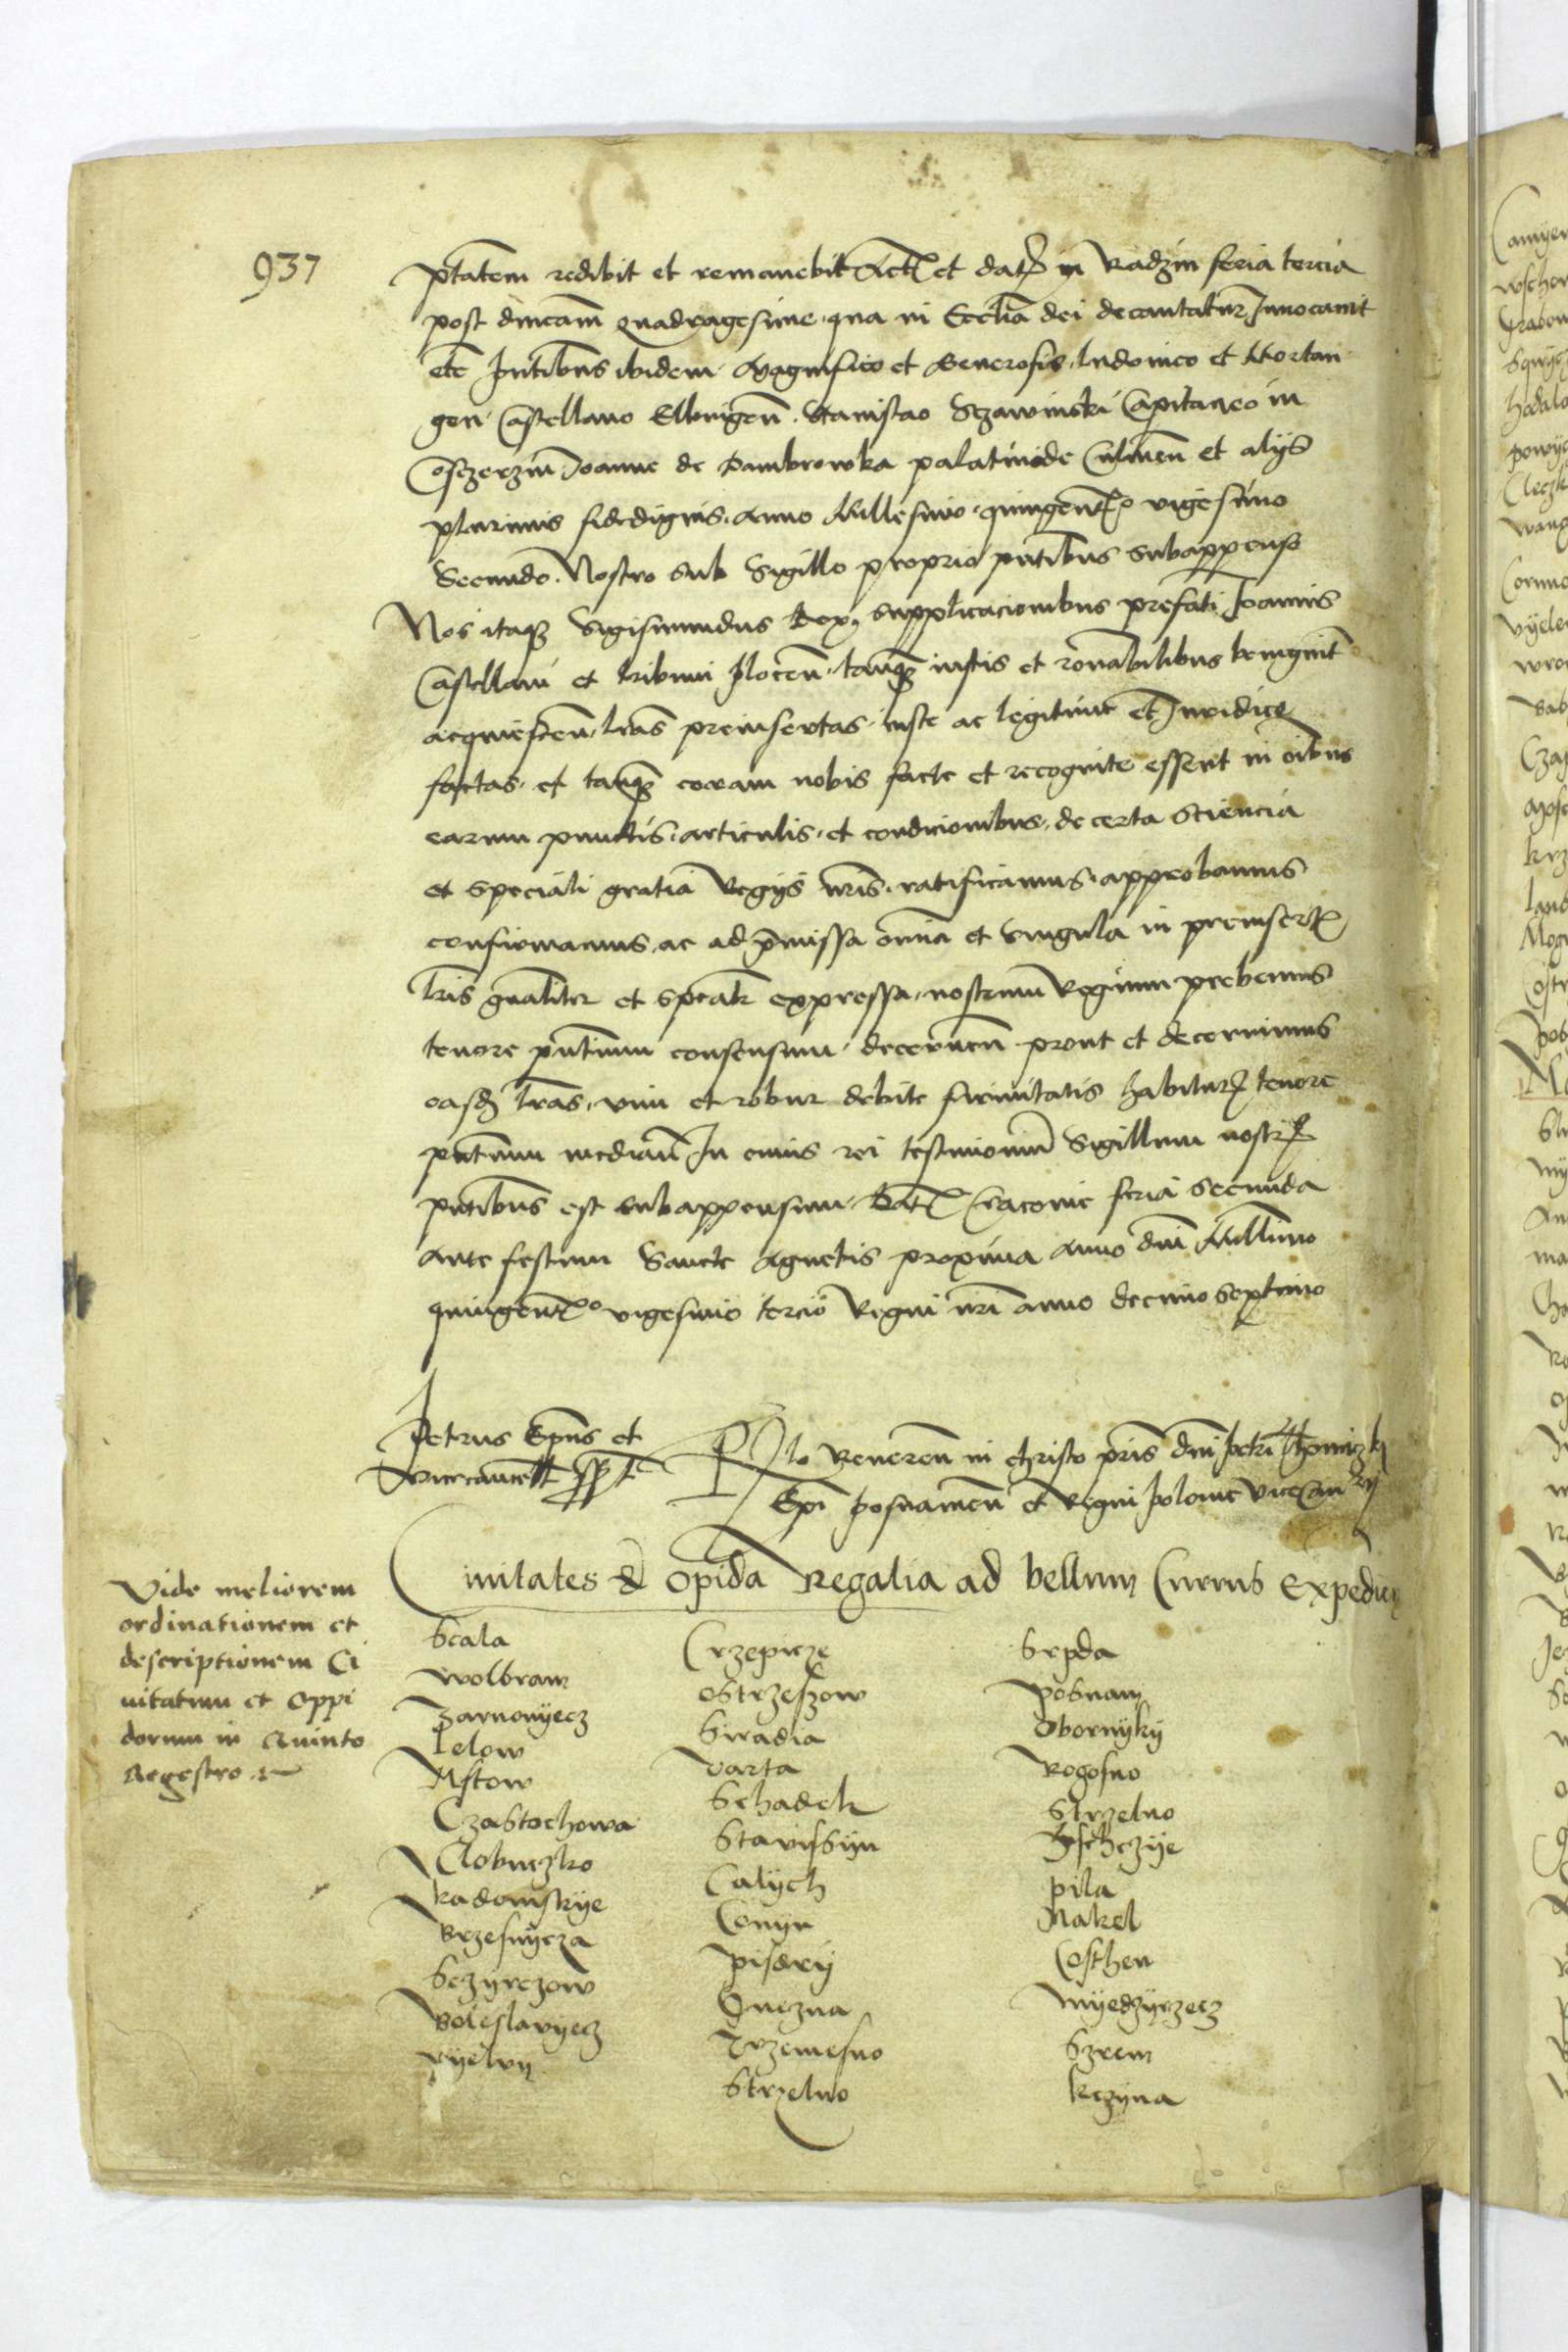 937
ptatem redibit et remanebit Act et dat in Radzin feria tercia
post dnicam quadragesime qua in Ecclia dei decantatur Innocauit
etc pntibus ibidem Magnifico et Generosis Ludouico et Mortan
gen Castellano Elbingen Stanislao Sczawinski Capitaneo in
Cosczerzin Joanne de Dambrowka palatinide Culmen et alijs
plurimis fidedignis Anno Millesimo quingent° vigesimo
Secundo. Nostro sub Sigillo proprio pntibus subappenso
Nos itaq Sigismundus Rex supplicacionibus prefati Joannis
Castellani et tribuni plocen tanq iustis et ronabilibus benignit
acquiescen lras preinsertas iuste ac legitime et Juridice
factas et tanq coram nobis facte et recognite essent in oibus
earum punctis articulis et condicionibus de certa sciencia
et speciali gratia Regijs nris ratificamus approbamus
confirmamus ac ad pmissa omnia et singula in preinsert
lris gnaliter et spealr expressa nostrum Regium prebemus
tenore pntium consensum decernen prout et decernimus
easd lras vim et robur debite firmitatis habitur tenore
pntium median In cuius rei testimonium Sigillum nostr
pntibus est subappensum Dat Cracouie feria secunda
Ante festum Sancte Agnetis proxima Anno dni Millimo
quingent° vigesimo tercio Regni nri anno decimo septimo
Petrus Epus et
Vicecancell sspt
Rlo Reueren in christo pris dni petri Thomiczkj
Epi posnanien et Regni polonie Vicecancrij
Ciuitates & opida Regalia ad bellum Currus Expedien
Vide meliorem
ordinationem et
descriptionem Ci
uitatum et Oppi
dorum in Quinto
Regestro
Scala
Wolbram
Zarnouyecz
Lelow
Mstow
Czastochowa
Clobuczko
Radomskye
Brzesnycza
Sczyrczow
Boleslavyecz
Vyelvn
Crzepicze
Ostrzeszow
Siradia
Varta
Schadek
Stavissyn
Calysch
Conyn
Pisdry
Gnezna
Trzemesno
Strzelno
Srpda
Posnam
Obornyky
Rogosno
Strzelno
Vschczye
Pila
Nakel
Costhen
Myedzyrzecz
Szrem
Kczyna